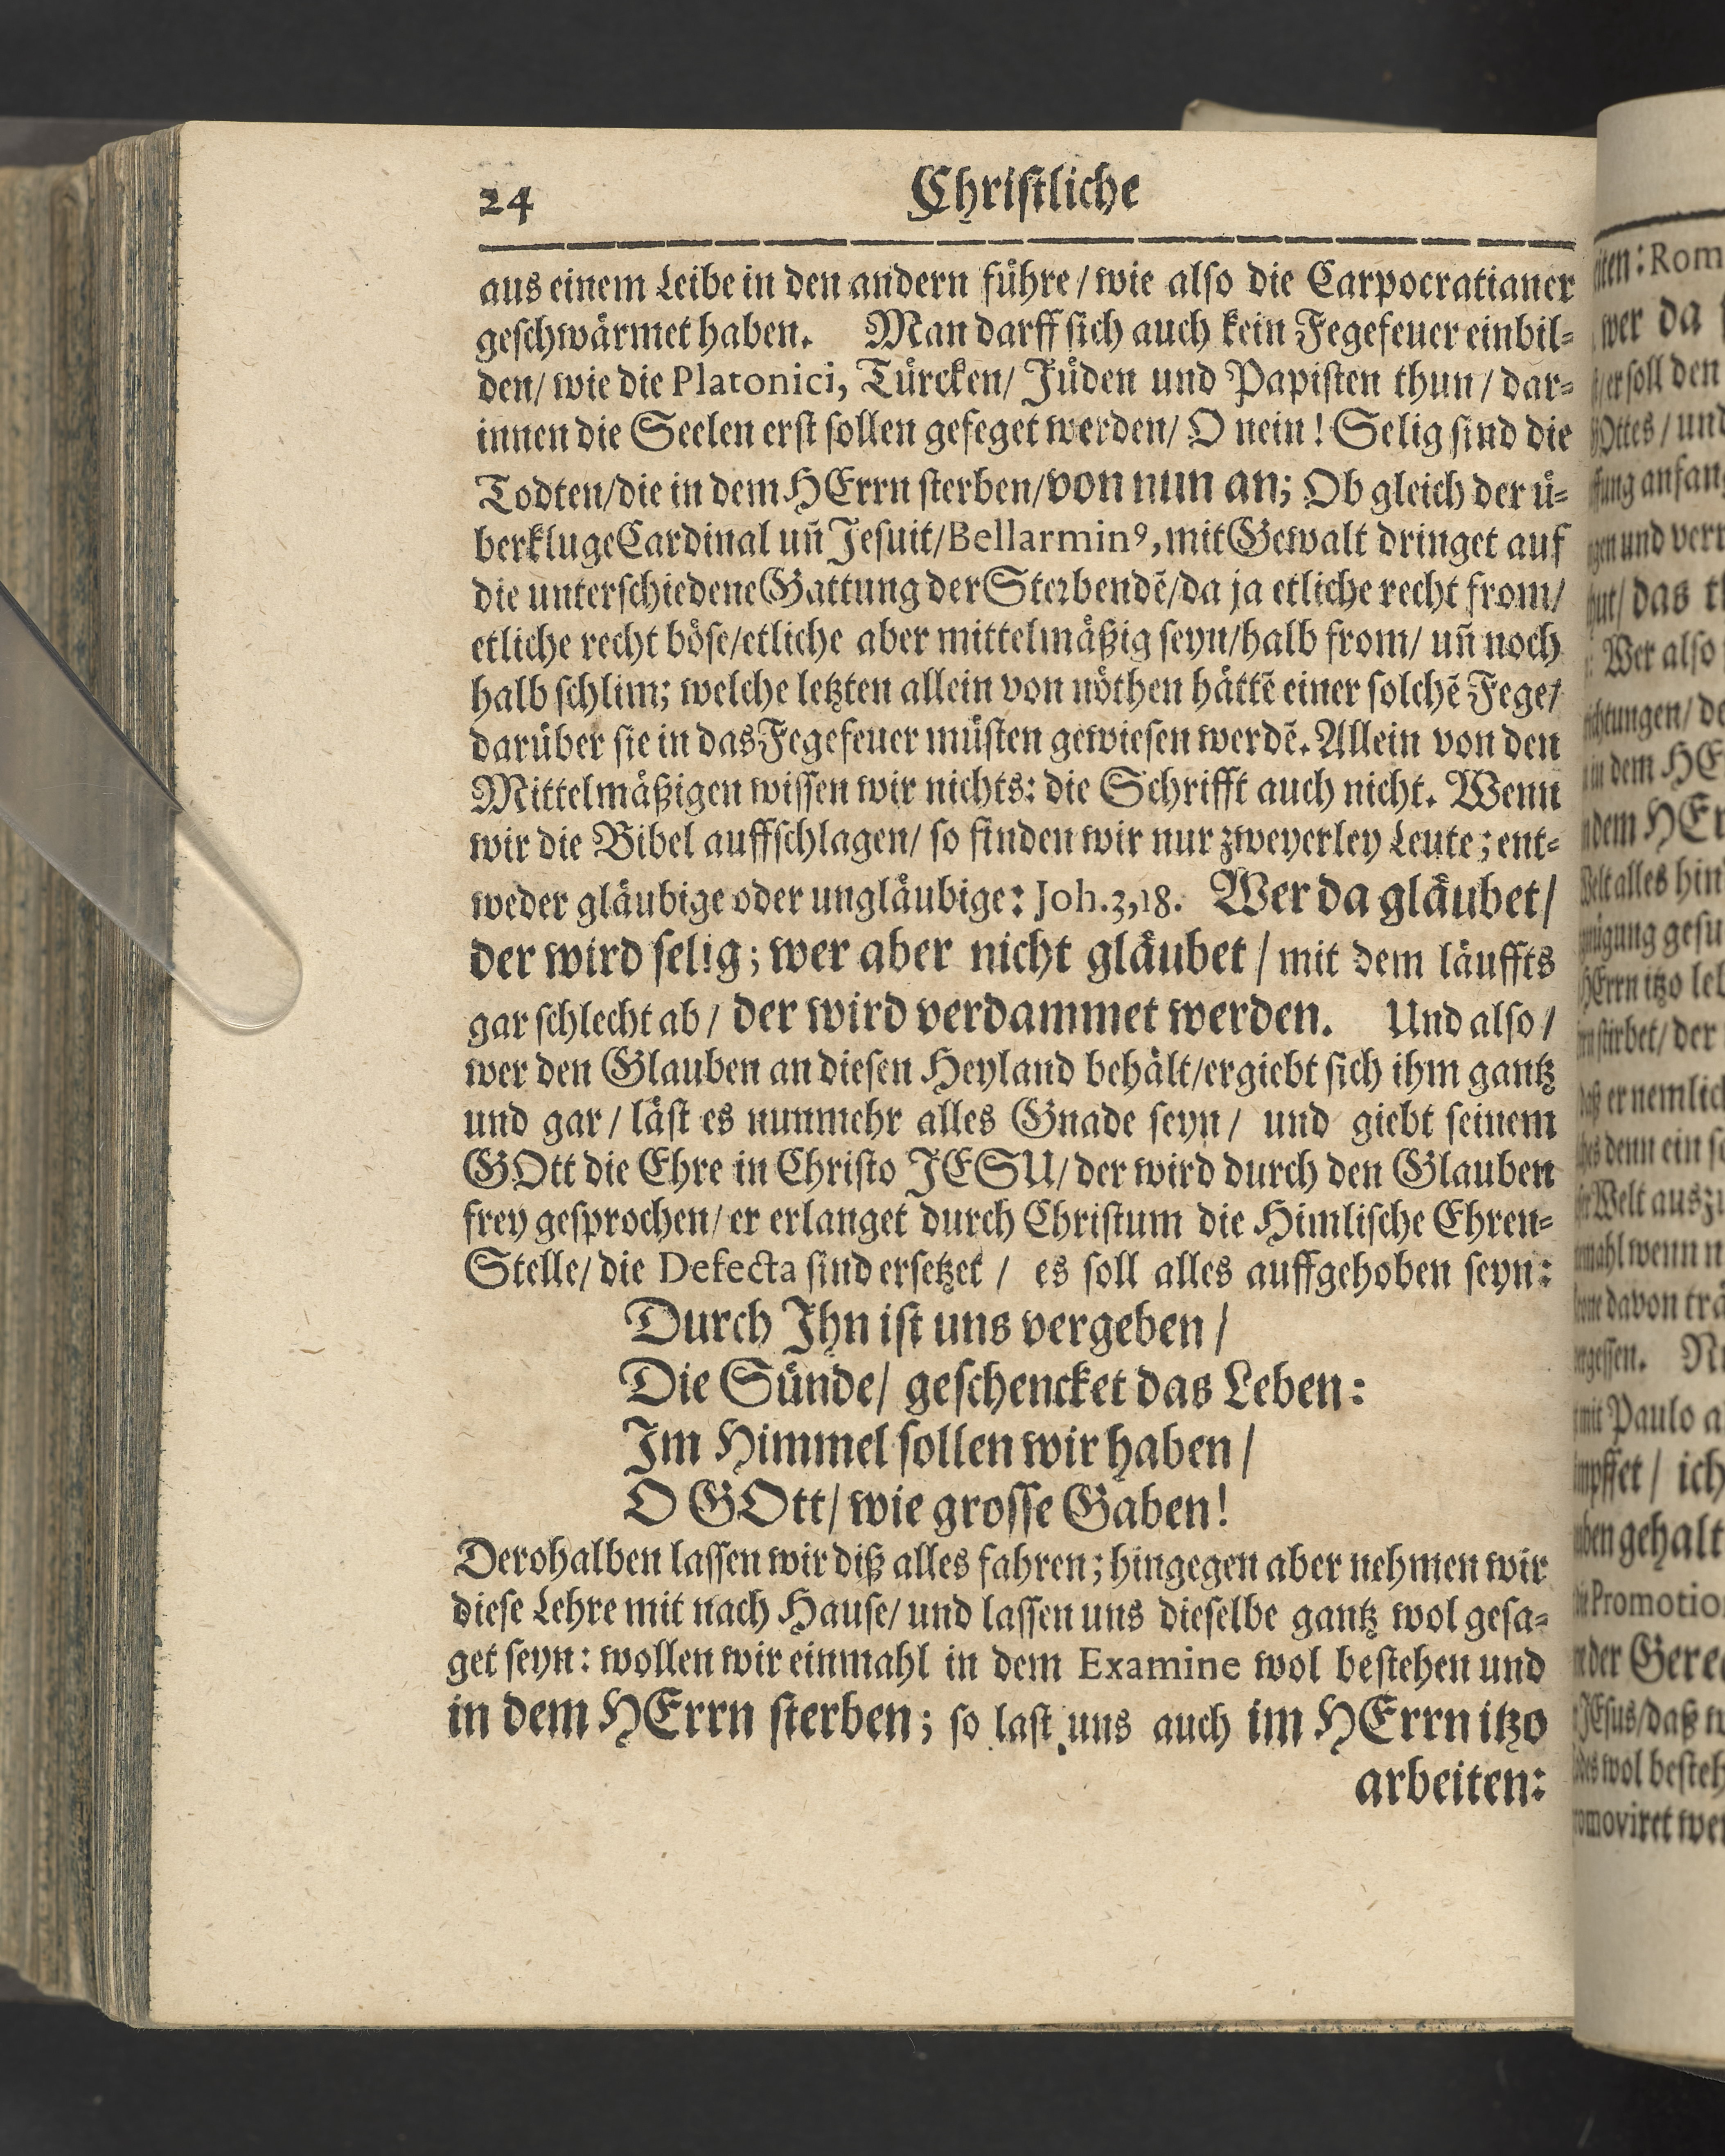 24 Christliche
aus einem Leibe in den andern führe/ wie also die Carpocratianer
geschwärmet haben. Man darff sich auch kein Fegefeuer einbil-
den/ wie die Platonici, Türcken/ Jüden und Papisten thun/ dar-
innen die Seelen erst sollen gefeget werden/ O nein! Selig sind die
Todten/die in dem HErrn sterben/von nun an; Ob gleich der ü-
berkluge Cardinal uñ Jesuit/Bellarminꝰ, mit Gewalt dringet auf
die unterschiedene Gattung der Sterbendẽ/da ja etliche recht from/
etliche recht böse/etliche aber mittelmäßig seyn/halb from/ uñ noch
halb schlim; welche letzten allein von nöthen hättẽ einer solchẽ Fege/
darüber sie in das Fegefeuer müsten gewiesen werdẽ. Allein von den
Mittelmäßigen wissen wir nichts: die Schrifft auch nicht. Wenn
wir die Bibel auffschlagen/ so finden wir nur zweyerley Leute; ent-
weder gläubige oder ungläubige: Joh.3,18. Wer da gläubet/
der wird selig; wer aber nicht gläubet/ mit dem läuffts
gar schlecht ab/ der wird verdammet werden. Und also/
wer den Glauben an diesen Heyland behält/ergiebt sich ihm gantz
und gar/ läst es nunmehr alles Gnade seyn/ und giebt seinem
GOtt die Ehre in Christo JESU/ der wird durch den Glauben
frey gesprochen/ er erlanget durch Christum die Himlische Ehren-
Stelle/ die Defecta sind ersetzet/ es soll alles auffgehoben seyn:
Durch Ihn ist uns vergeben/
Die Sünde/ geschencket das Leben:
Im Himmel sollen wir haben/
O GOtt/ wie grosse Gaben!
Derohalben lassen wir diß alles fahren; hingegen aber nehmen wir
diese Lehre mit nach Hause/ und lassen uns dieselbe gantz wol gesa-
get seyn: wollen wir einmahl in dem Examine wol bestehen und
in dem HErrn sterben; so last uns auch im HErrn itzo
arbeiten: